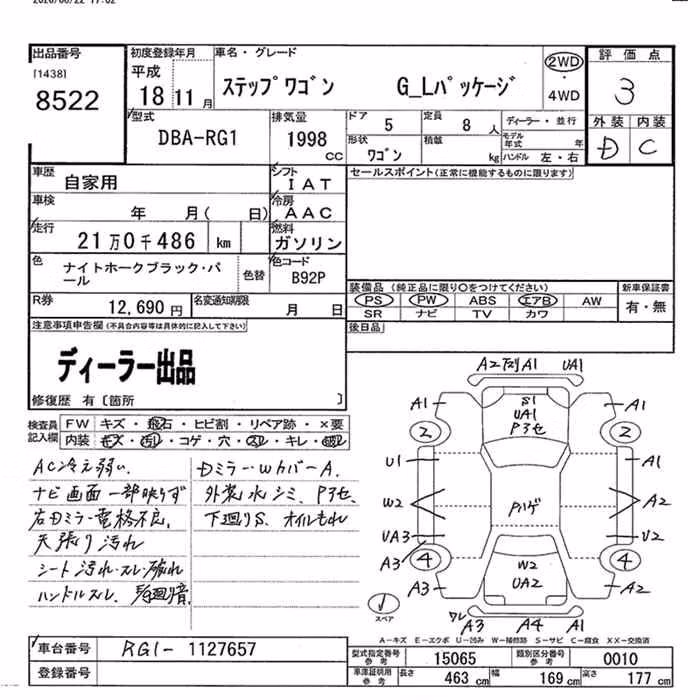 2026/06/22 17:02
出品番号 初度登録年月 車名・グレード 評価点
[1438] 平成 2WD
8522 18 11月 ステップワゴン G_Lパッケージ ・ 3
4WD
型式 排気量 ドア 5 定員 8人 ディーラー・並行 外装 内装
DBA-RG1 1998 cc 形状 ワゴン 積載 kg モデル年式 年 D C
ハンドル 左・右
車歴 自家用 シフト IAT セールスポイント(正常に機能するものに限ります)
車検 年 月( 日) 冷房 AAC
走行 21万0千486 km 燃料 ガソリン
色 ナイトホークブラック・パール 色替 色コード B92P
装備品(純正品に限り○をつけてください) 新車保証書
R券 12,690円 名変通知期限 月 日 PS PW ABS エアB AW 有・無
SR ナビ TV カワ
注意事項申告欄(不具合内容等は具体的に記入して下さい) 後日品
ディーラー出品
修復歴 有〔箇所 〕
検査員記入欄 FW キズ・飛石・ヒビ割・リペア跡・×要
内装 キズ・汚れ・コゲ・穴・スレ・キレ・破れ
AC冷え弱い、 Dミラー・WhバーA、
ナビ画面一部映らず 外装水シミ、Pヌセ、
右Dミラー電格不良、 下廻りS、オイルもれ
天張り汚れ
シート汚れ・スレ・破れ
ハンドルスレ、
A2 A1 UA1
A1 S1 A1
UA1
2 2
U1 A1
W2 Pハゲ A2
UA3 U2
A3
4 W2 4
A3 UA2 A2
スペア ワレ A3 A4 A1
A-キズ E-エクボ U-凹み W-補修跡 S-サビ C-腐食 XX-交換済
車台番号 RG1-1127657 型式指定番号 参考 15065 類別区分番号 参考 0010
登録番号 車庫証明用 参考 長さ 463cm 幅 169cm 高さ 177cm